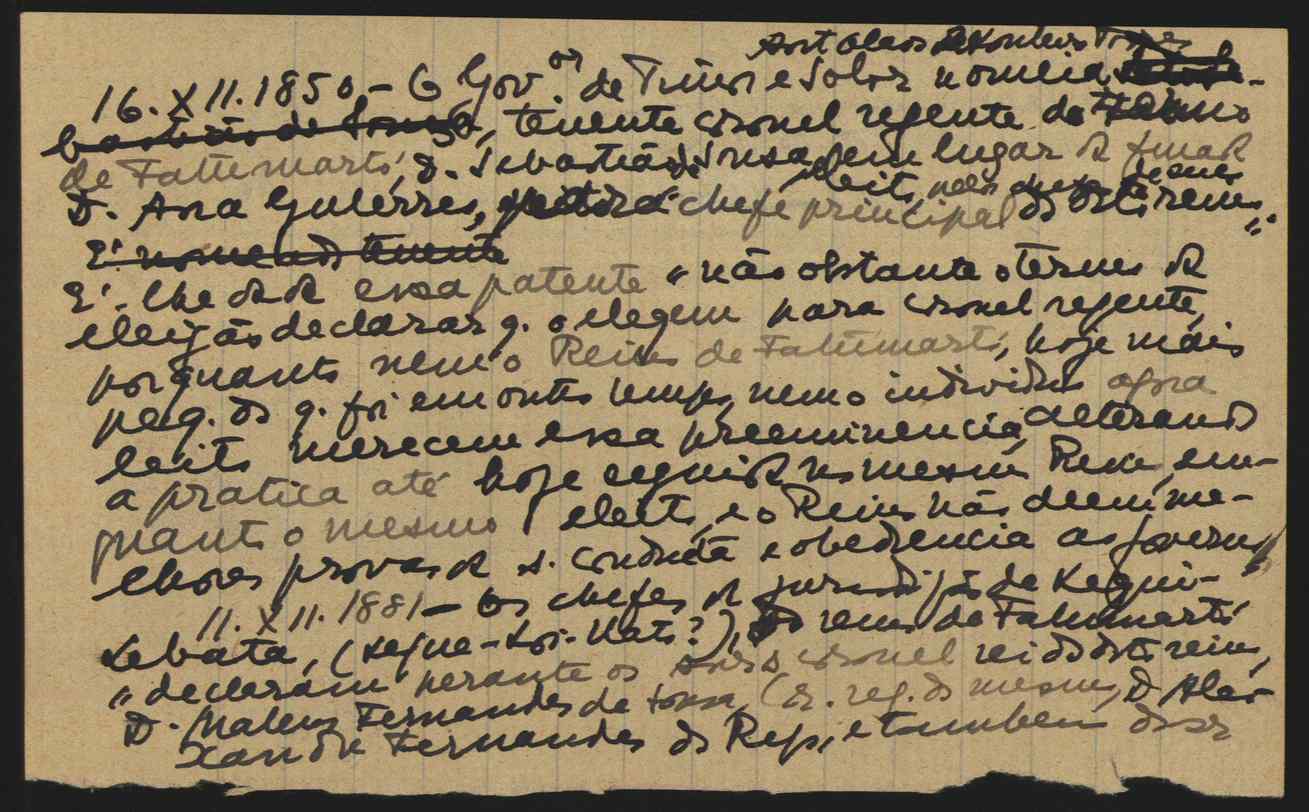 Ant Olavo Monteiro Torres
16.XII.1850 – O Gov.or de Timor e Solor nomeia
, tenente coronel regente do Reino
de Fatumarto, D. Sebastião de Sousa, em lugar de
eleito pelos
D. Ana Gutérres, chefe principal do reino.„
E' nomeado tenente
E' lhe dada essa patente "não obstante o termo de
eleição declarar q. o elegem para coronel regente,
porquanto nem o Reino de Fatumarto, hoje mais
peq. do q. foi em outro tempo, nem o individuo agora
eleito merecem essa preeminencia, alterando
a pratica até hoje seguida no mesmo Reino, em-
quanto o mesmo eleito, e o Reino não derem me-
lhores provas de s. conduta e obediencia ao governo
11.XII.1881 – Os chefes de jurisdição de Keqni-
Lebata, (Keque-Loi-Hato?), do reino de Fatumarto
"declaram perante os coronel rei do dito reino,
D. Mateus Fernandes de Sousa, (or. reg. do mesmo, D. Ale-
xandre Fernandes do Rego, e tambem do sr